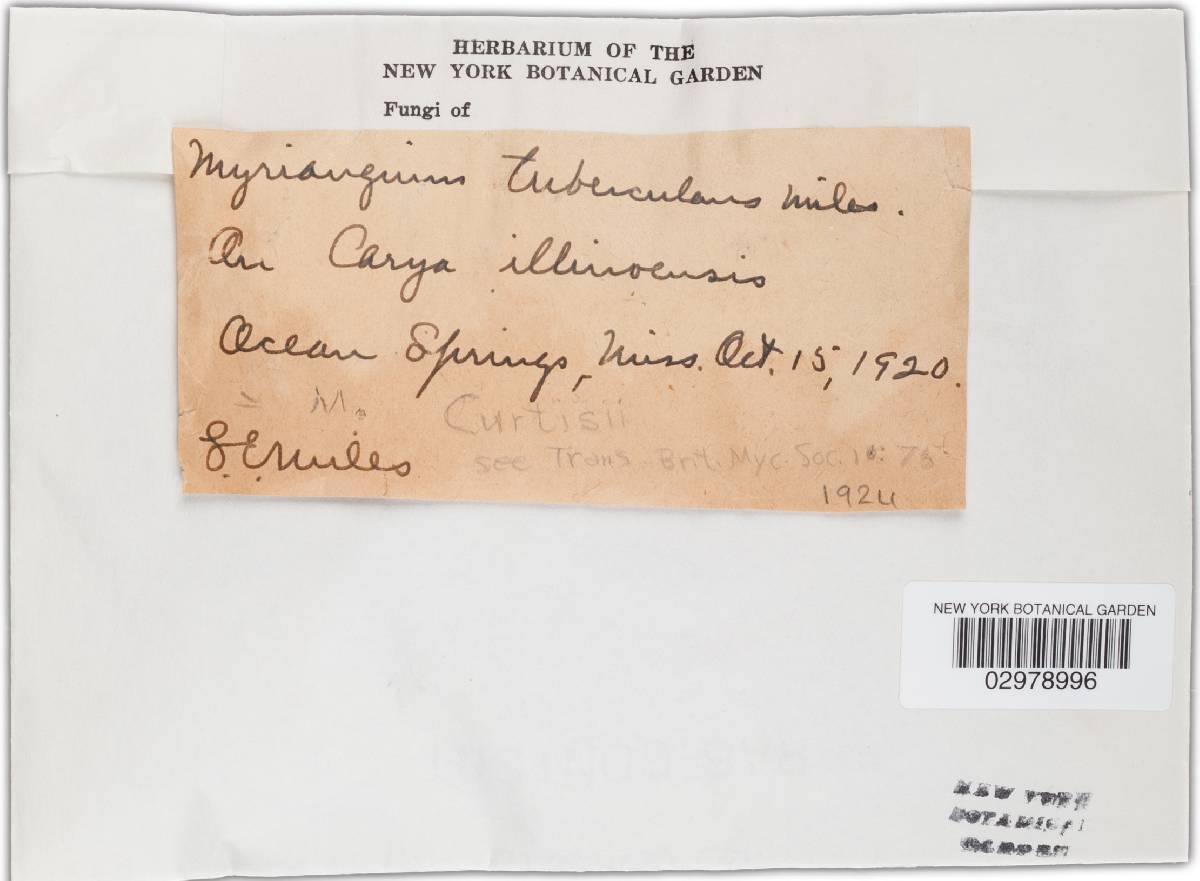 HERBARIUM OF THE
NEW YORK BOTANICAL GARDEN
Fungi of
Myriangium tuberculans Miles.
On Carya illinoensis
Ocean Springs, Miss. Oct. 15, 1920.
= M. Curtisii
L.E. Miles
see Trans. Brit. Myc. Soc.
1924
NEW YORK BOTANICAL GARDEN
02978996
NEW YORK
BOTANICAL
GARDEN